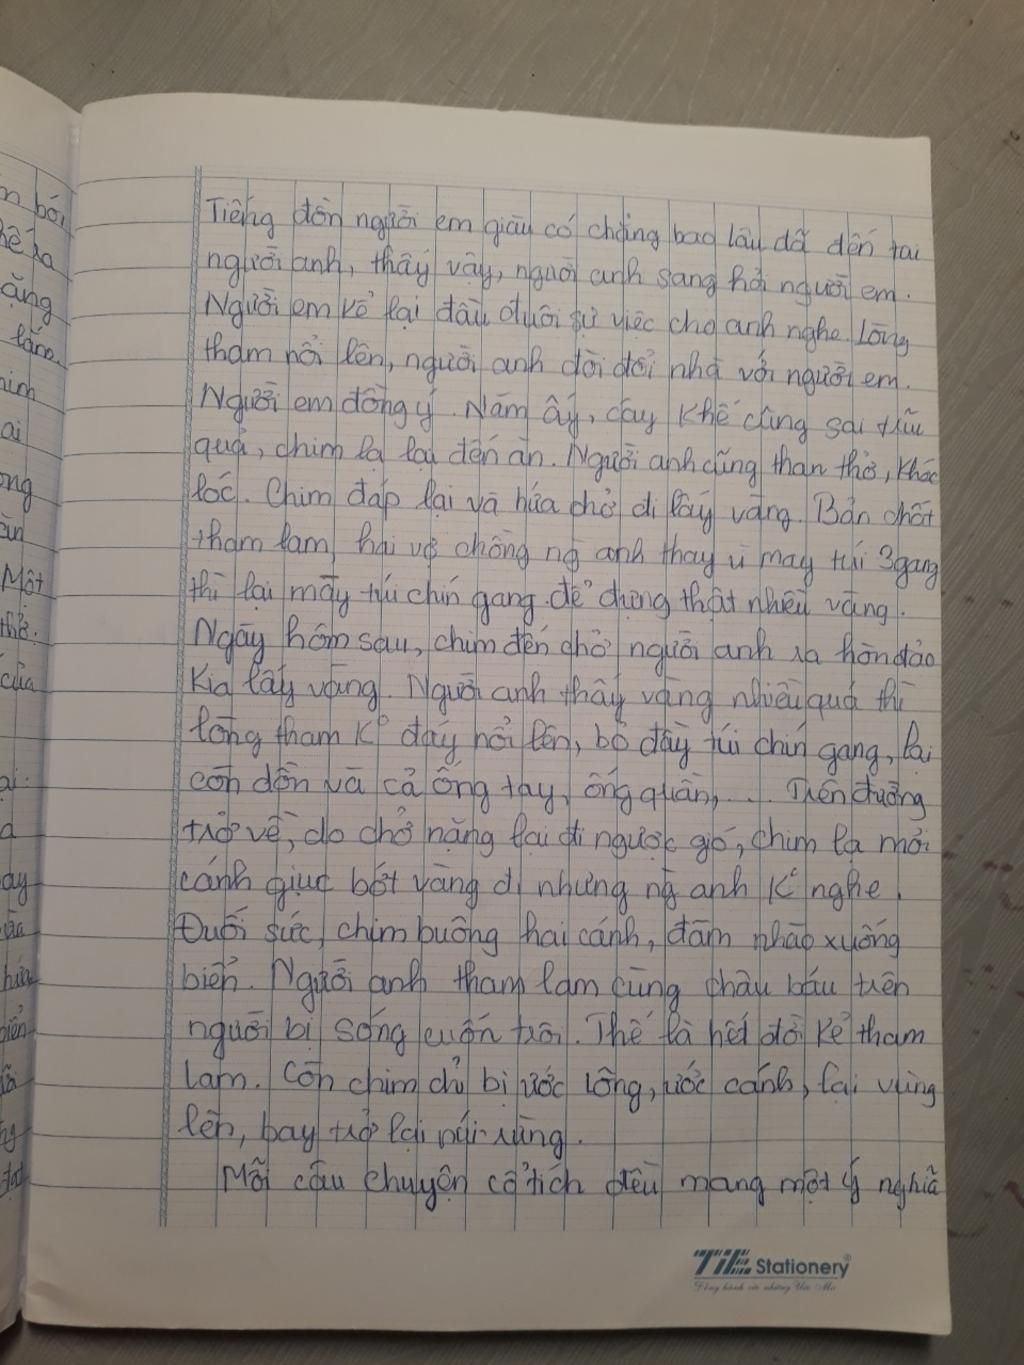 Tiếng đồn người em giàu có chẳng bao lâu đã đến tai
người anh, thấy vậy, người anh sang hỏi người em.
Người em kể lại đầu đuôi sự việc cho anh nghe. Lòng
tham nổi lên, người anh đòi đổi nhà với người em.
Người em đồng ý. Năm ấy, cây khế cũng sai trĩu
quả, chim lạ lại đến ăn. Người anh cũng than thở, khóc
lóc. Chim đáp lại và hứa chở đi lấy vàng. Bản chất
tham lam, hai vợ chồng ng anh thay vì may túi 3 gang
thì lại mấy túi chín gang để đựng thật nhiều vàng.
Ngày hôm sau, chim đến chở người anh ra hòn đảo
kia lấy vàng. Người anh thấy vàng nhiều quá thì
lòng tham k° đáy nổi lên, bỏ đầy túi chín gang, lại
còn dồn và cả ống tay, ống quần,... Trên đường
trở về, do chở nặng lại đi ngược gió, chim lạ mỏi
cánh giục bớt vàng đi nhưng ng anh k° nghe.
Đuối sức, chim buông hai cánh, đâm nhào xuống
biển. Người anh tham lam cùng châu báu trên
người bị sóng cuốn trôi. Thế là hết đời kẻ tham
lam. Còn chim chỉ bị ướt lông, ướt cánh, lại vùng
lên, bay trở lại núi rừng.
Mỗi câu chuyện cổ tích đều mang một ý nghĩa
TiE Stationery
bói
ăng
ai
Một
thở.
của